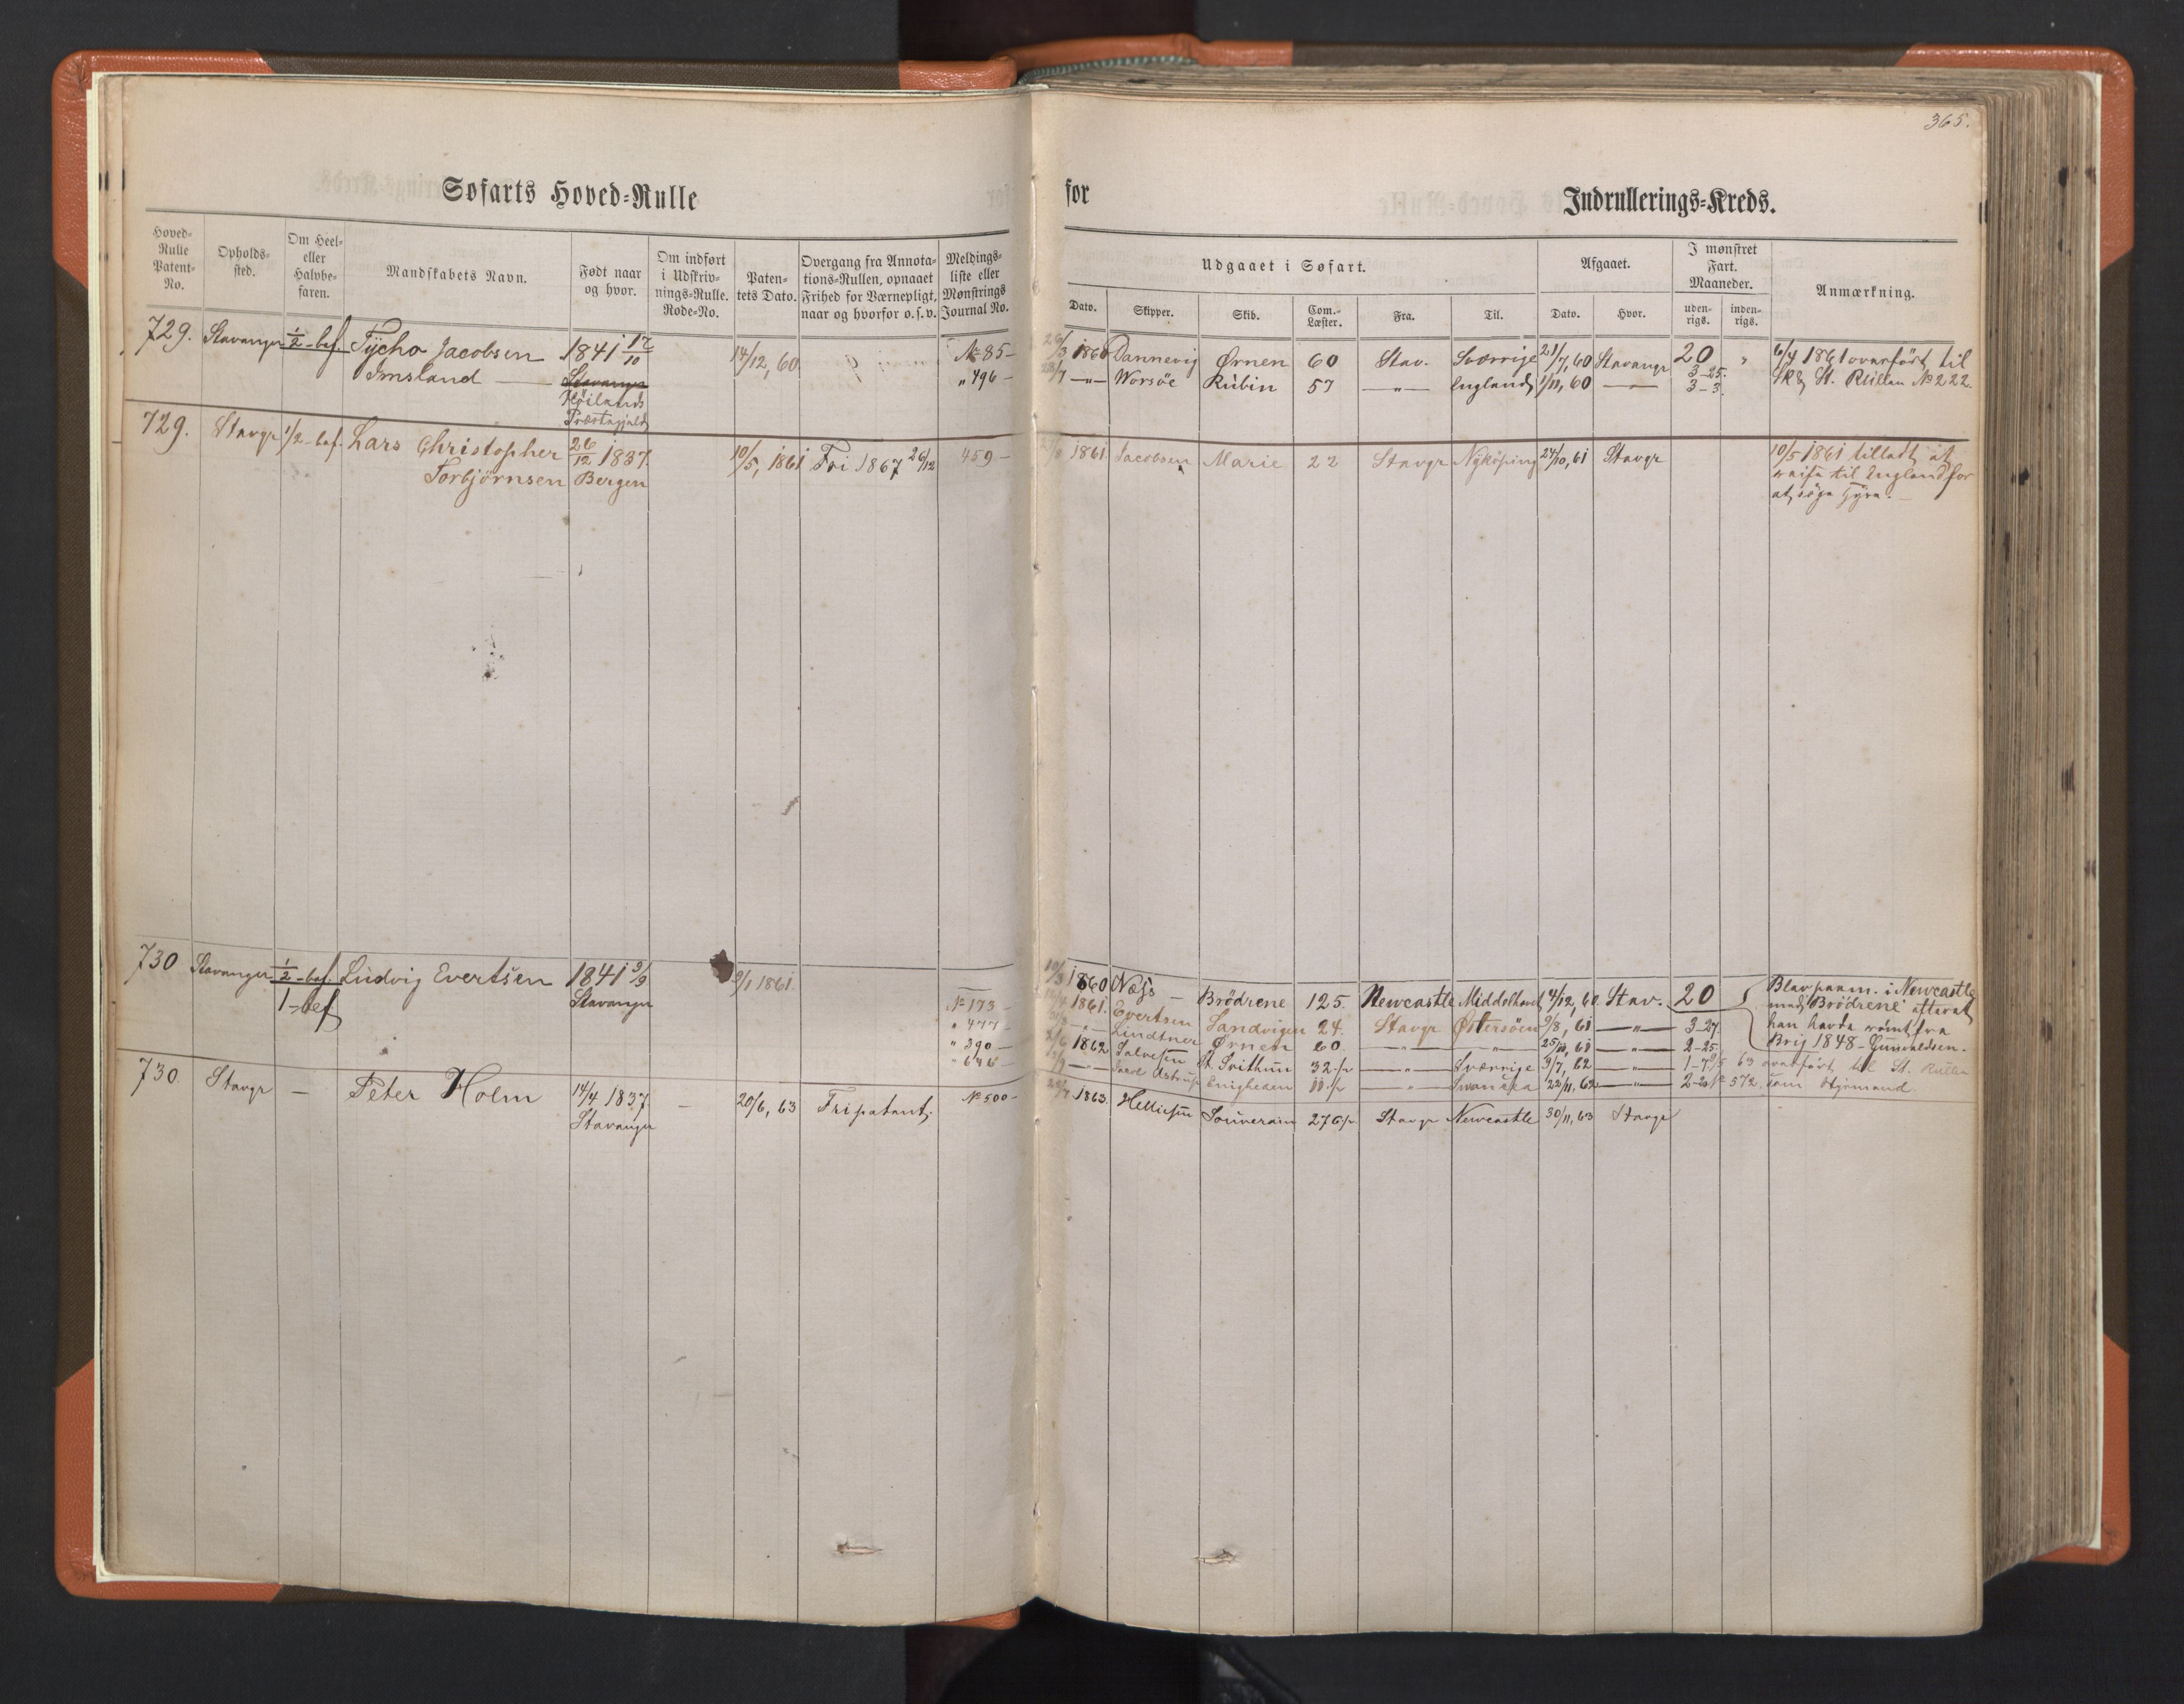 365.
Søfarts Hoved-Rulle for Indrullerings-Kreds.
Hoved-Rulle Patent-No.
Opholds-sted.
Om Heel- eller Halvbe-faren.
Mandskabets Navn.
Født naar og hvor.
Om indført i Udskriv-nings-Rulle. Rode-No.
Paten-tets Dato.
Overgang fra Annota-tions-Rullen, opnaaet Frihed for Værnepligt, naar og hvorfor o.s.v.
Meldings-liste eller Mønstrings Journal No.
Udgaaet i Søfart.
Dato. Skipper. Skib. Com.-Læster. Fra. Til.
Afgaaet.
Dato. Hvor.
I mønstret Fart. Maaneder.
uden-rigs. inden-rigs.
Anmærkning.
729. Stavanger 1/2-bef. Tycho Jacobsen 1841 17/10 14/12, 60 No 85 - 1860 Dannevig Ørnen 60 Stav. Sverrige 21/7, 60 Stavangr 20 " 6/4 1861 overført til
Imsland Stavanger " 496 - —"— Worsöe Rubin 57 —"— England 1/11, 60 3-25. 3-3. St. Rullen No 222.
Høilands
Præstegjeld
729. Stavgr 1/2-bef. Lars Christopher 26/12 1837. 10/5, 1861 Fri 1867 26/12 459 - 1861 Jacobsen Marie 22 Stavgr Nykøping 24/10, 61 Stavgr 10/5 1861 tilladt at
Torbjörnsen Bergen reise til England for
at søge Hyre.
730 Stavanger 1/2-bef. Ludvig Evertsen 1841 9/9 9/1 1861. 1860 Næss - Brödrene 125. Newcastle 4/12, 60 Stav. 20 Blev paam. i Newcastle
1-bef Stavanger No 173 - 1861. Evertsen Sandvigen 24. Stavgr Østersöen 9/8, 61 —"— 3-27. med Brödrene efterat
" 477 - —"— Lindtner Ørnen 60 —"— —"— —"— 2-25. han havde römt fra
" 390 - 1862 Salvesen St. Svithun 32 —"— Sverrige 3/7, 62 —"— Brig 1848 - Gunvaldsen.
" 646 - —"— Enigheden —"— Swansea 22/11, 62 —"— 63 overført til St. Rullen
No 572. som Styrmand.
730. Stavgr — Peter Holm 14/4 1837. — 20/6, 63 Fripatent. No 500 - 1863. Helliesen Souverain 276 Stavgr Newcastle 30/11, 63 Stavgr
Stavanger